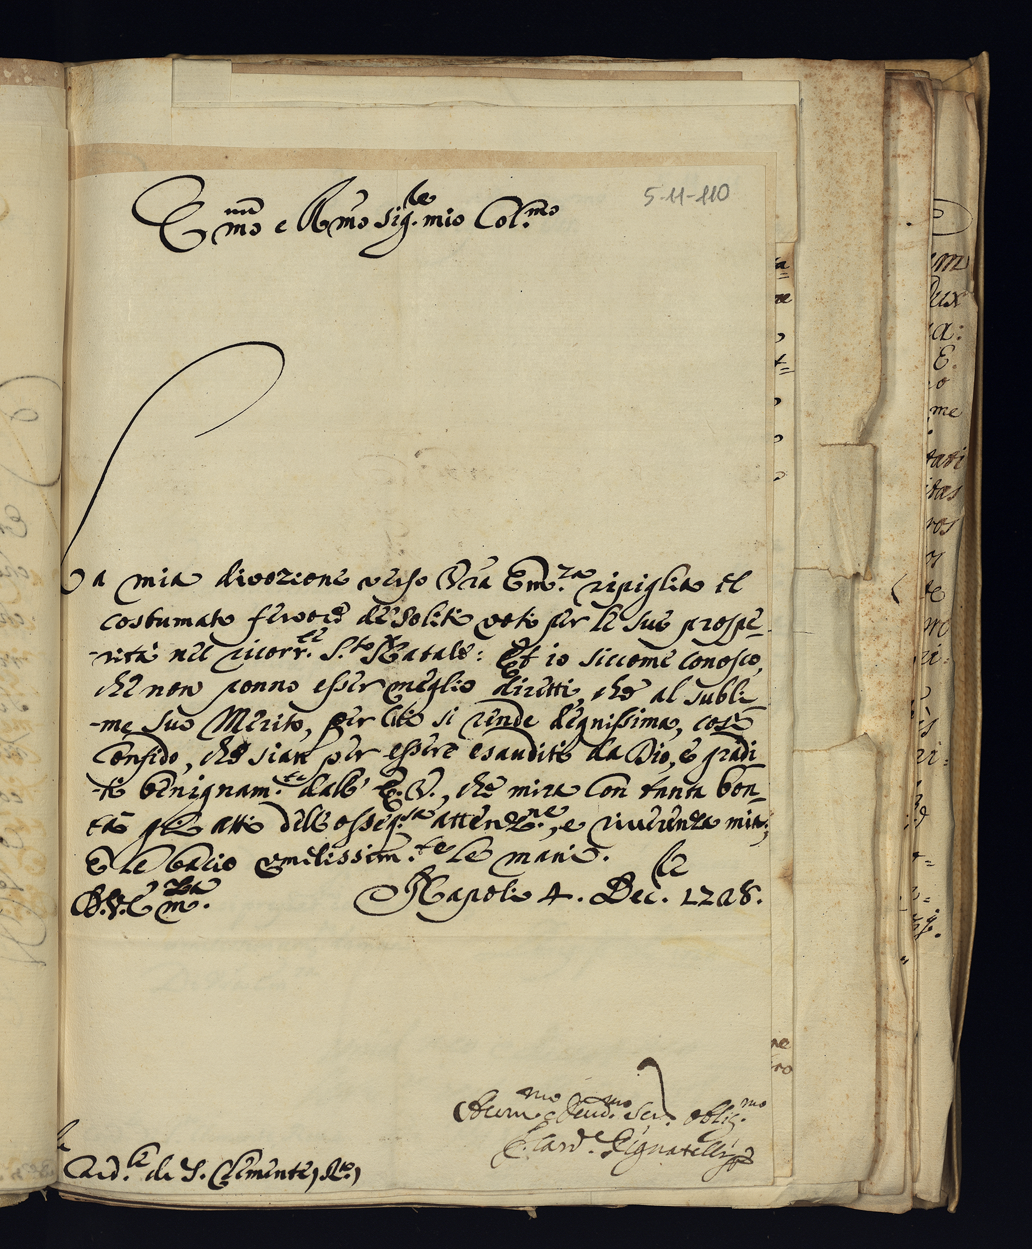 5-11-110
Em̃o e Rm̃o Sig.re mio Col.mo
La mia divozione verso V̄ra Em.za ripiglia il
costumato fervore de soliti voti per le sue prospe-
-rità nel ricorr.te S.to Natale: Et io siccome conosco,
che non ponno esser meglio diretti, che al subli-
-me suo Merito, per cui si rende degnissima, così
confido, che sian per essere esauditi da Dio, e gradi-
-ti benignam.te dall' E.V., che mira con tanta bon-
tà gli atti dell' osseq.sa attenz.ne, e riverenza mia;
E le bacio umilissim.te le mani.
D.V.Em.za Napoli 4. Dec.re 1728.
Hum.mo e Dev.mo Ser. oblig.mo
F. Card.l Pignatelli
Card.le di S. Clemente